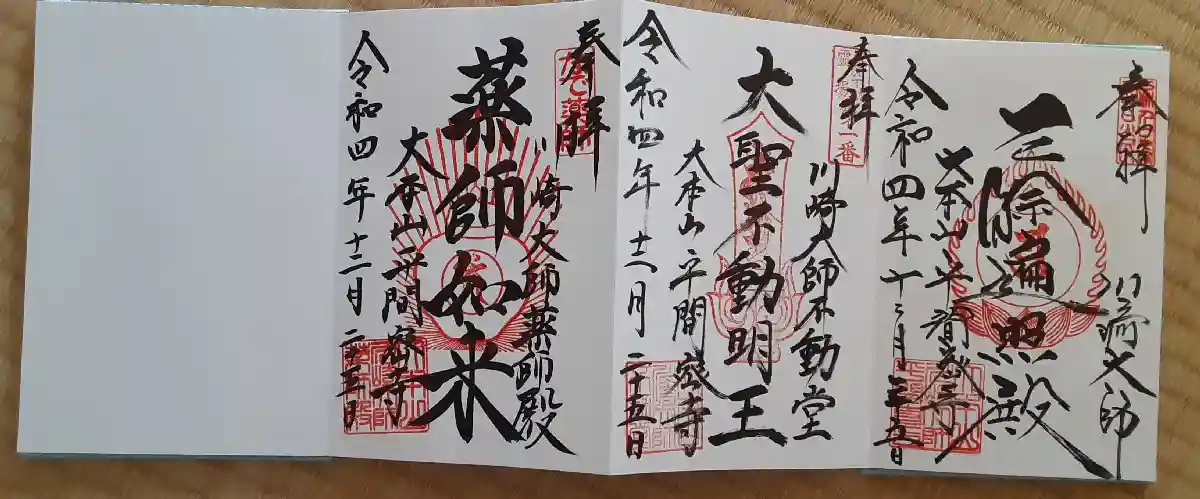 奉拝
川崎大師
遍照殿
大本山平間密寺
令和四年十二月二十五日
奉拝
一番
川崎大師不動堂
大聖不動明王
大本山平間密寺
令和四年十二月二十五日
奉拝
川崎大師薬師殿
薬師如来
大本山平間密寺
令和四年十二月二十五日